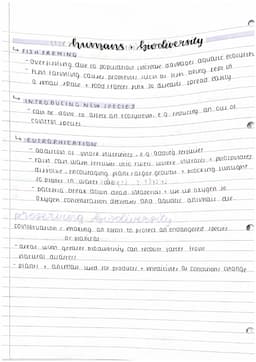 humans + biodiversity
FISH FARMING
- overfishing due to population increase damages aquatic ecosystem
- fish farming causes problems such as fish being kept in
a small space + food transfer so diseases spread easily
INTRODUCING NEW SPECIES
- can be done to alter an ecosystem e.g. ensuring an out of
control species
EUTROPHICATION
- addition of more nutrients e.g. adding fertiliser
- rain can wash fertiliser into rivers where nitrates +
dissolve, encouraging plant/algae growth + blocking sunlight
to plants in water
- bacteria break down dead organisms + use up oxygen so
oxygen concentration decreases and aquatic animals die
preserving biodiversity
conservation = making an effort to protect an endangered species
or habitat
- areas with greater biodiversity can recover faster from
natural disasters
- plants + animals used for products + medicines so consumers change